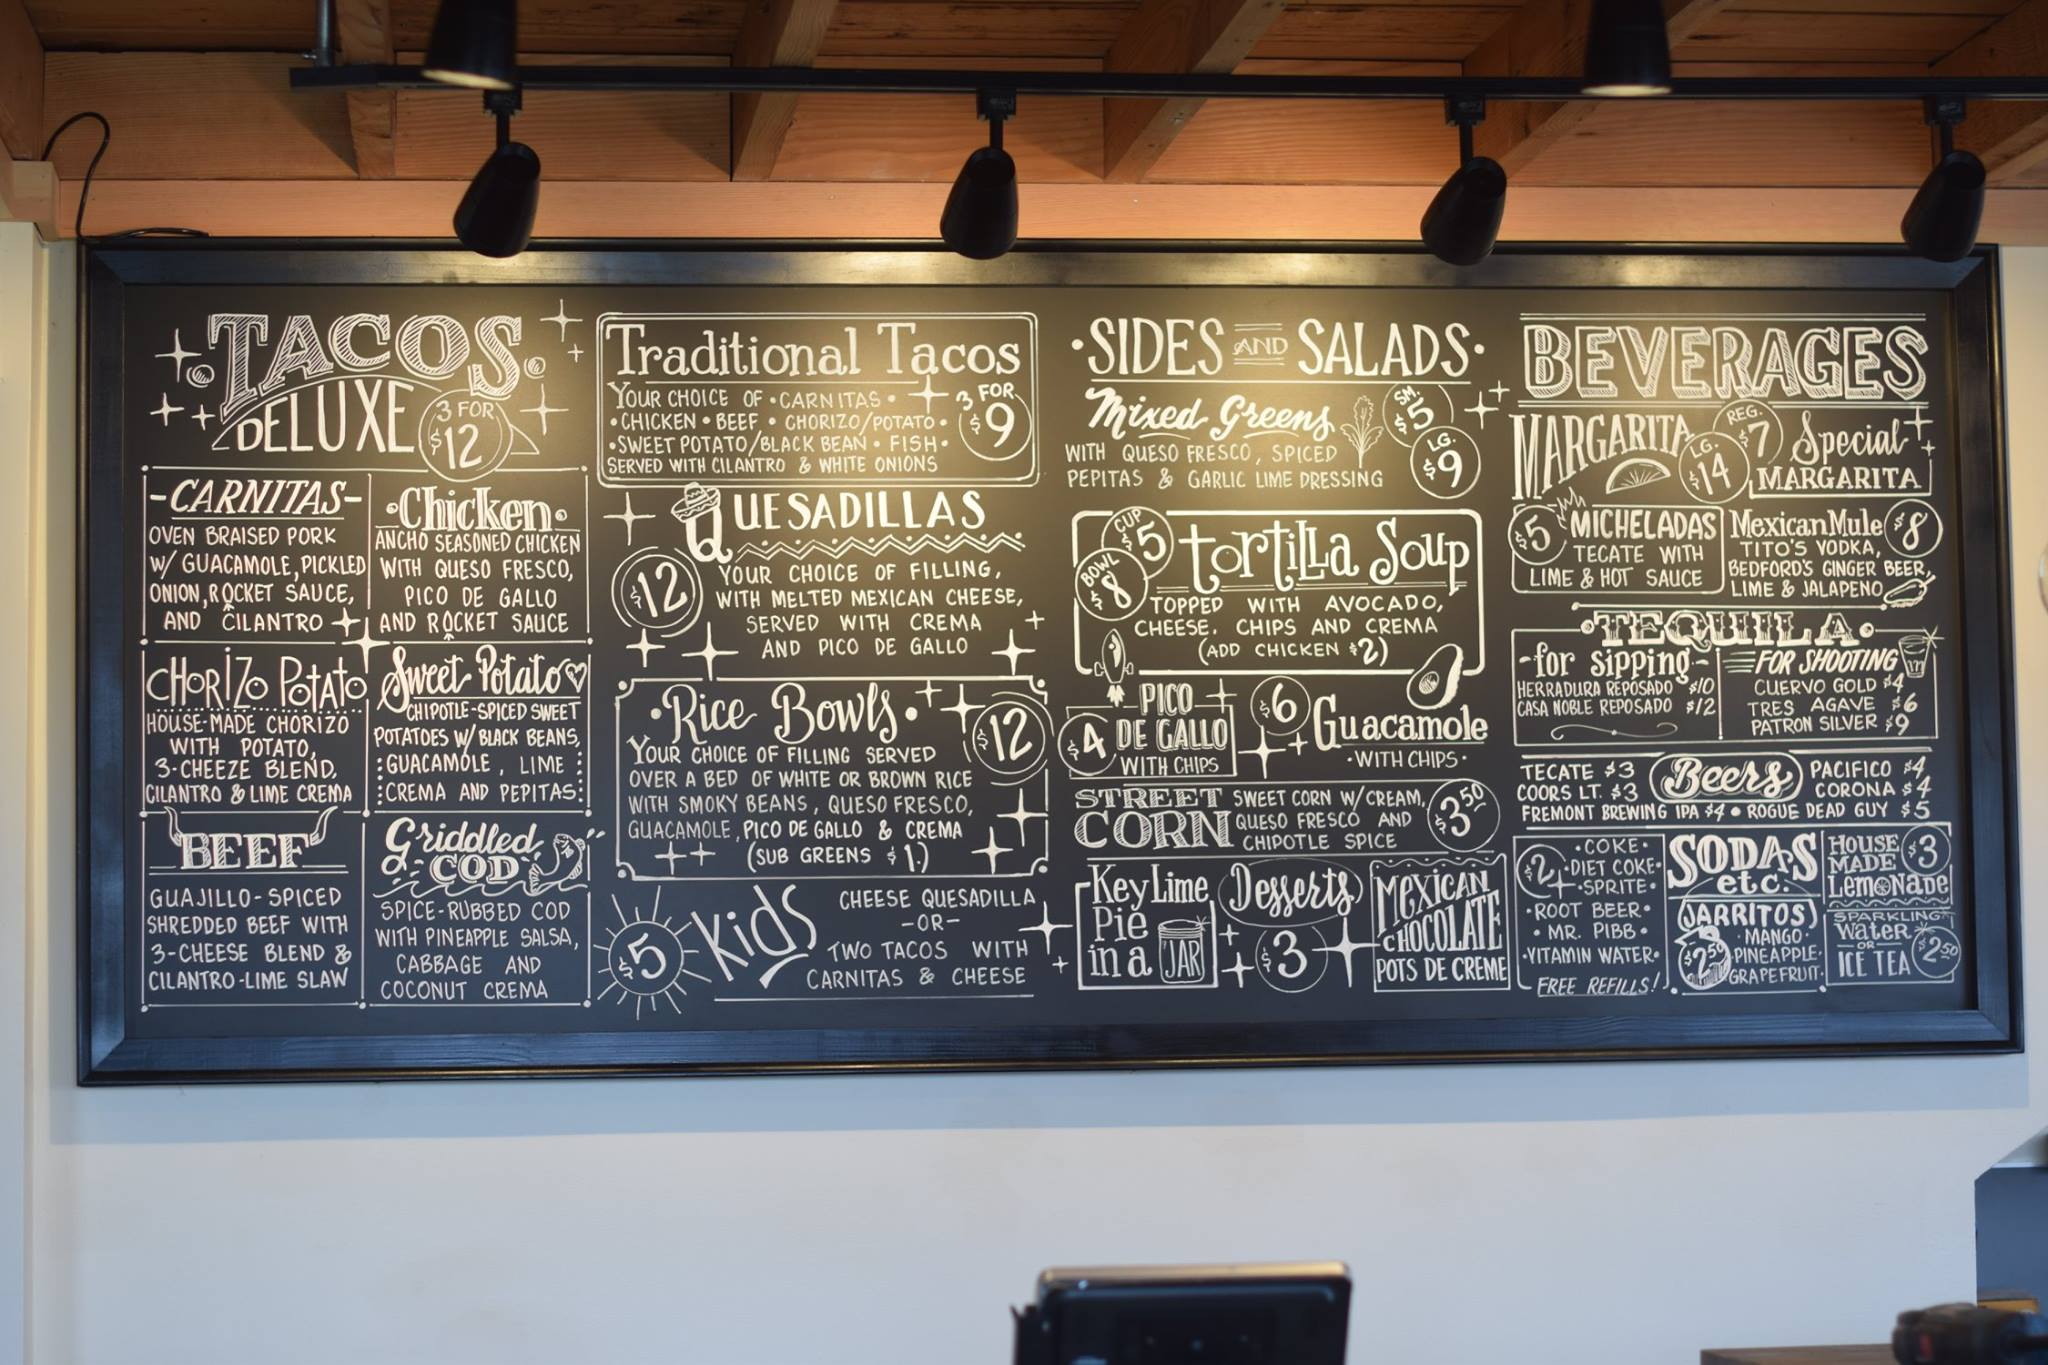 TACOS
DELUXE
3 FOR
$12
-CARNITAS-
OVEN BRAISED PORK
W/ GUACAMOLE, PICKLED
ONION, ROCKET SAUCE,
AND CILANTRO
Chicken
ANCHO SEASONED CHICKEN
WITH QUESO FRESCO,
PICO DE GALLO
AND ROCKET SAUCE
CHORIZO POTATO
HOUSE-MADE CHORIZO
WITH POTATO,
3-CHEEZE BLEND,
CILANTRO & LIME CREMA
Sweet Potato
CHIPOTLE-SPICED SWEET
POTATOES W/ BLACK BEANS,
GUACAMOLE, LIME
CREMA AND PEPITAS
BEEF
GUAJILLO-SPICED
SHREDDED BEEF WITH
3-CHEESE BLEND &
CILANTRO-LIME SLAW
Griddled
COD
SPICE-RUBBED COD
WITH PINEAPPLE SALSA,
CABBAGE AND
COCONUT CREMA
Traditional Tacos
YOUR CHOICE OF • CARNITAS •
• CHICKEN • BEEF • CHORIZO/POTATO •
• SWEET POTATO/BLACK BEAN • FISH •
SERVED WITH CILANTRO & WHITE ONIONS
3 FOR
$9
QUESADILLAS
$12
YOUR CHOICE OF FILLING,
WITH MELTED MEXICAN CHEESE,
SERVED WITH CREMA
AND PICO DE GALLO
• Rice Bowls •
$12
YOUR CHOICE OF FILLING SERVED
OVER A BED OF WHITE OR BROWN RICE
WITH SMOKY BEANS, QUESO FRESCO,
GUACAMOLE, PICO DE GALLO & CREMA
(SUB GREENS $1.)
$5
Kids
CHEESE QUESADILLA
-OR-
TWO TACOS WITH
CARNITAS & CHEESE
• SIDES AND SALADS •
Mixed Greens
SM. $5
LG. $9
WITH QUESO FRESCO, SPICED
PEPITAS & GARLIC LIME DRESSING
CUP $5
BOWL $8
tortilla Soup
TOPPED WITH AVOCADO,
CHEESE, CHIPS AND CREMA
(ADD CHICKEN $2)
$4
PICO
DE GALLO
WITH CHIPS
$6
Guacamole
• WITH CHIPS •
STREET
CORN
SWEET CORN W/ CREAM,
QUESO FRESCO AND
CHIPOTLE SPICE
$3.50
Key Lime
Pie
in a JAR
Desserts
$3
MEXICAN
CHOCOLATE
POTS DE CREME
BEVERAGES
MARGARITA
REG. $7
LG. $14
Special
MARGARITA
$5
MICHELADAS
TECATE WITH
LIME & HOT SAUCE
Mexican Mule
$8
TITO'S VODKA,
BEDFORD'S GINGER BEER,
LIME & JALAPENO
• TEQUILA •
-for sipping-
HERRADURA REPOSADO $10
CASA NOBLE REPOSADO $12
FOR SHOOTING
CUERVO GOLD $4
TRES AGAVE $6
PATRON SILVER $9
Beers
TECATE $3
COORS LT. $3
PACIFICO $4
CORONA $4
FREMONT BREWING IPA $4 • ROGUE DEAD GUY $5
$2
• COKE •
• DIET COKE •
• SPRITE •
• ROOT BEER •
• MR. PIBB •
• VITAMIN WATER •
FREE REFILLS!
SODAS
etc.
JARRITOS
$2.50
• MANGO •
• PINEAPPLE •
GRAPEFRUIT •
HOUSE
MADE
LEMONADE
$3
SPARKLING
Water
OR
ICE TEA
$2.50